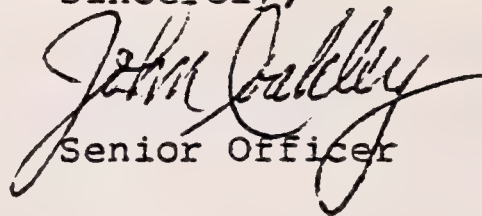 Sincerely,
John Coakley
Senior Officer